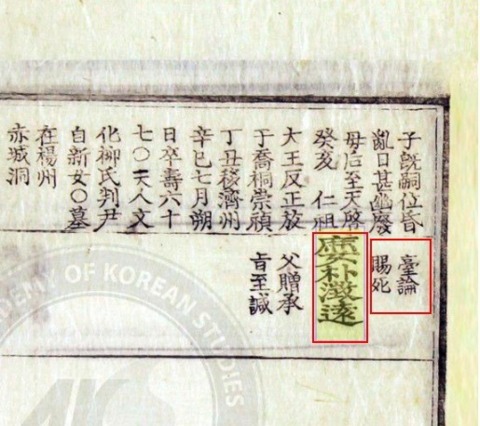 子旣嗣位昏
亂日甚幽廢
母后至天啓
癸亥 仁祖
大王反正放
于喬桐崇禎
丁丑移濟州
辛巳七月朔
日卒壽六十
七〇夫人文
化柳氏判尹
自新女〇墓
在楊州
赤城洞
臺論
賜死
庶女朴澂遠
父贈承
旨至誠
DEMY OF KOREAN STUDIES